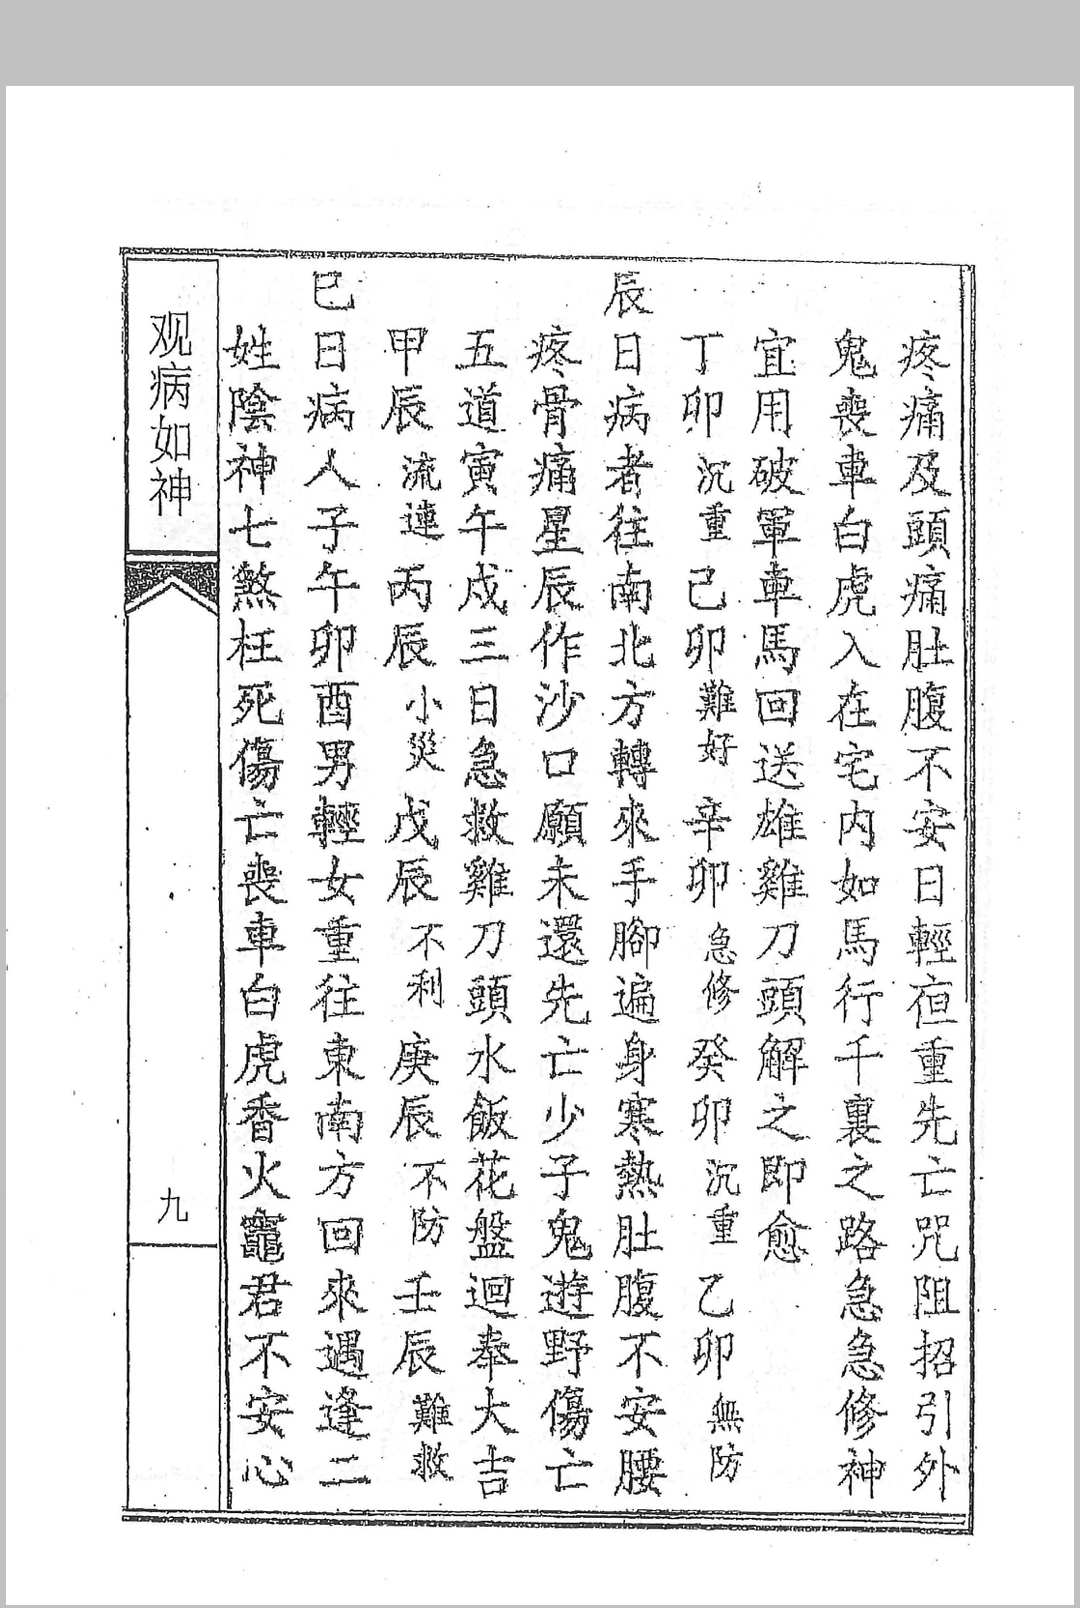 疼痛及頭痛肚腹不安日輕夜重先亡咒阻招引外
鬼喪車白虎入在宅內如馬行千裏之路急急修神
宜用破軍車馬回送雄雞刀頭解之即愈
丁卯沉重己卯難好辛卯急修癸卯沉重乙卯無防
辰日病者往南北方轉來手腳遍身寒熱肚腹不安腰
疼骨痛星辰作沙口願未還先亡少子鬼遊野傷亡
五道寅午戍三日急救雞刀頭水飯花盤迴奉大吉
甲辰流連丙辰小災戊辰不利庚辰不防壬辰難救
巳日病人子午卯酉男輕女重往東南方回來遇逢二
姓陰神七煞枉死傷亡喪車白虎香火竈君不安心
观病如神
九